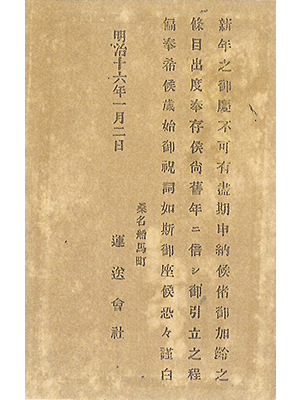 新年之御慶不可有盡期申納候偖御加齡之
條目出度奉存候尚舊年ニ倍シ御引立之程
偏奉希候歳始御祝詞如斯御座候恐々謹白
明治十六年一月二日
桑名傳馬町
運送會社